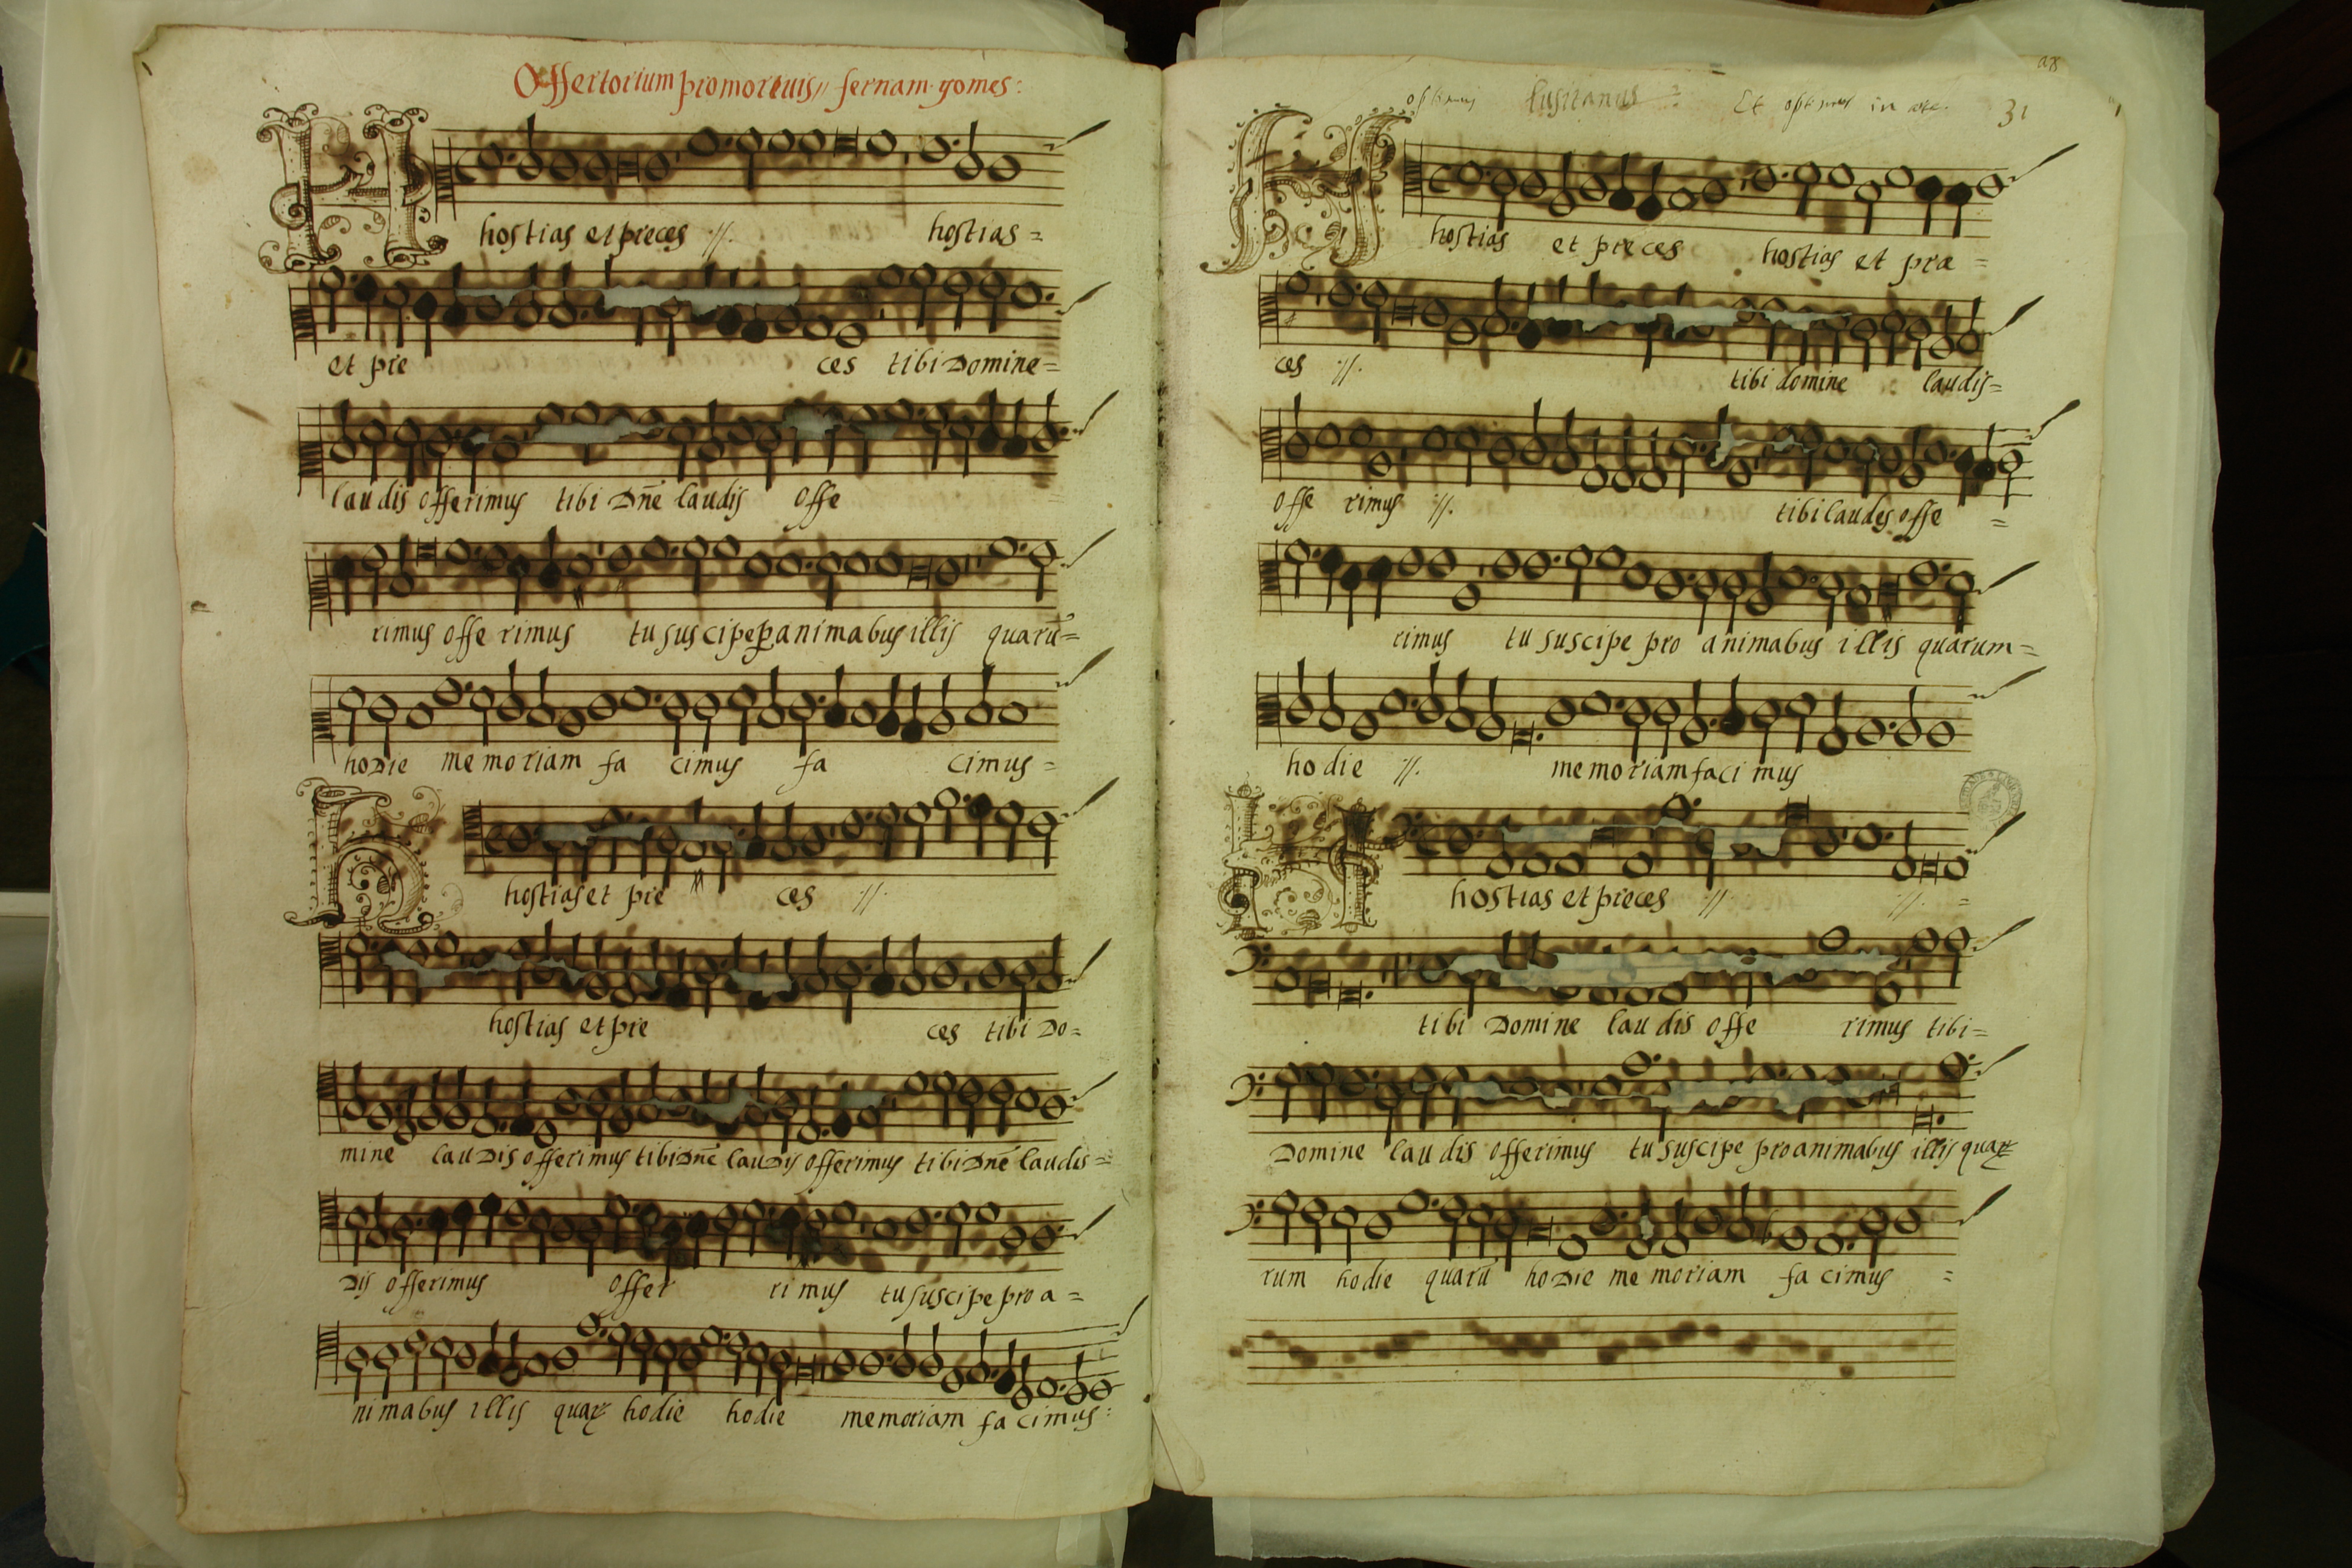 Offertorium pro mortuis // fernam gomes:
hostias et preces :// hostias =
et pre ces tibi Domine =
laudis offerimus tibi Dñe laudis offe
rimus offe rimus tu suscipe p animabus illis quarũ =
hodie memoriam fa cimus fa cimus =
hostias et pre ces ://
hostias et pre ces tibi Do =
mine laudis offerimus tibi Dñe laudis offerimus tibi Dñe laudis =
dis offerimus offer rimus tu suscipe pro a =
nimabus illis quar hodie hodie memoriam fa cimus:
optimus lusitanus : Et optimus in
31
hostias et preces hostias et pre =
ces :// tibi domine laudis =
offe rimus :// tibi laudes offe =
rimus tu suscipe pro animabus illis quarum =
hodie :// memoriam faci mus
hostias et preces :// :// =
tibi Domine laudis offe rimus tibi =
Domine laudis offerimus tu suscipe pro animabus illis qua =
rum hodie quarũ hodie memoriam fa cimus =